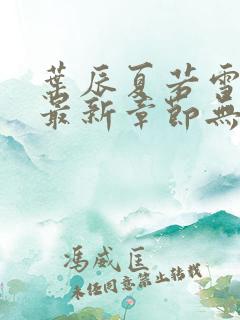 葉辰夏若雪
最新章節無
馮威匡
未经同意禁止转载